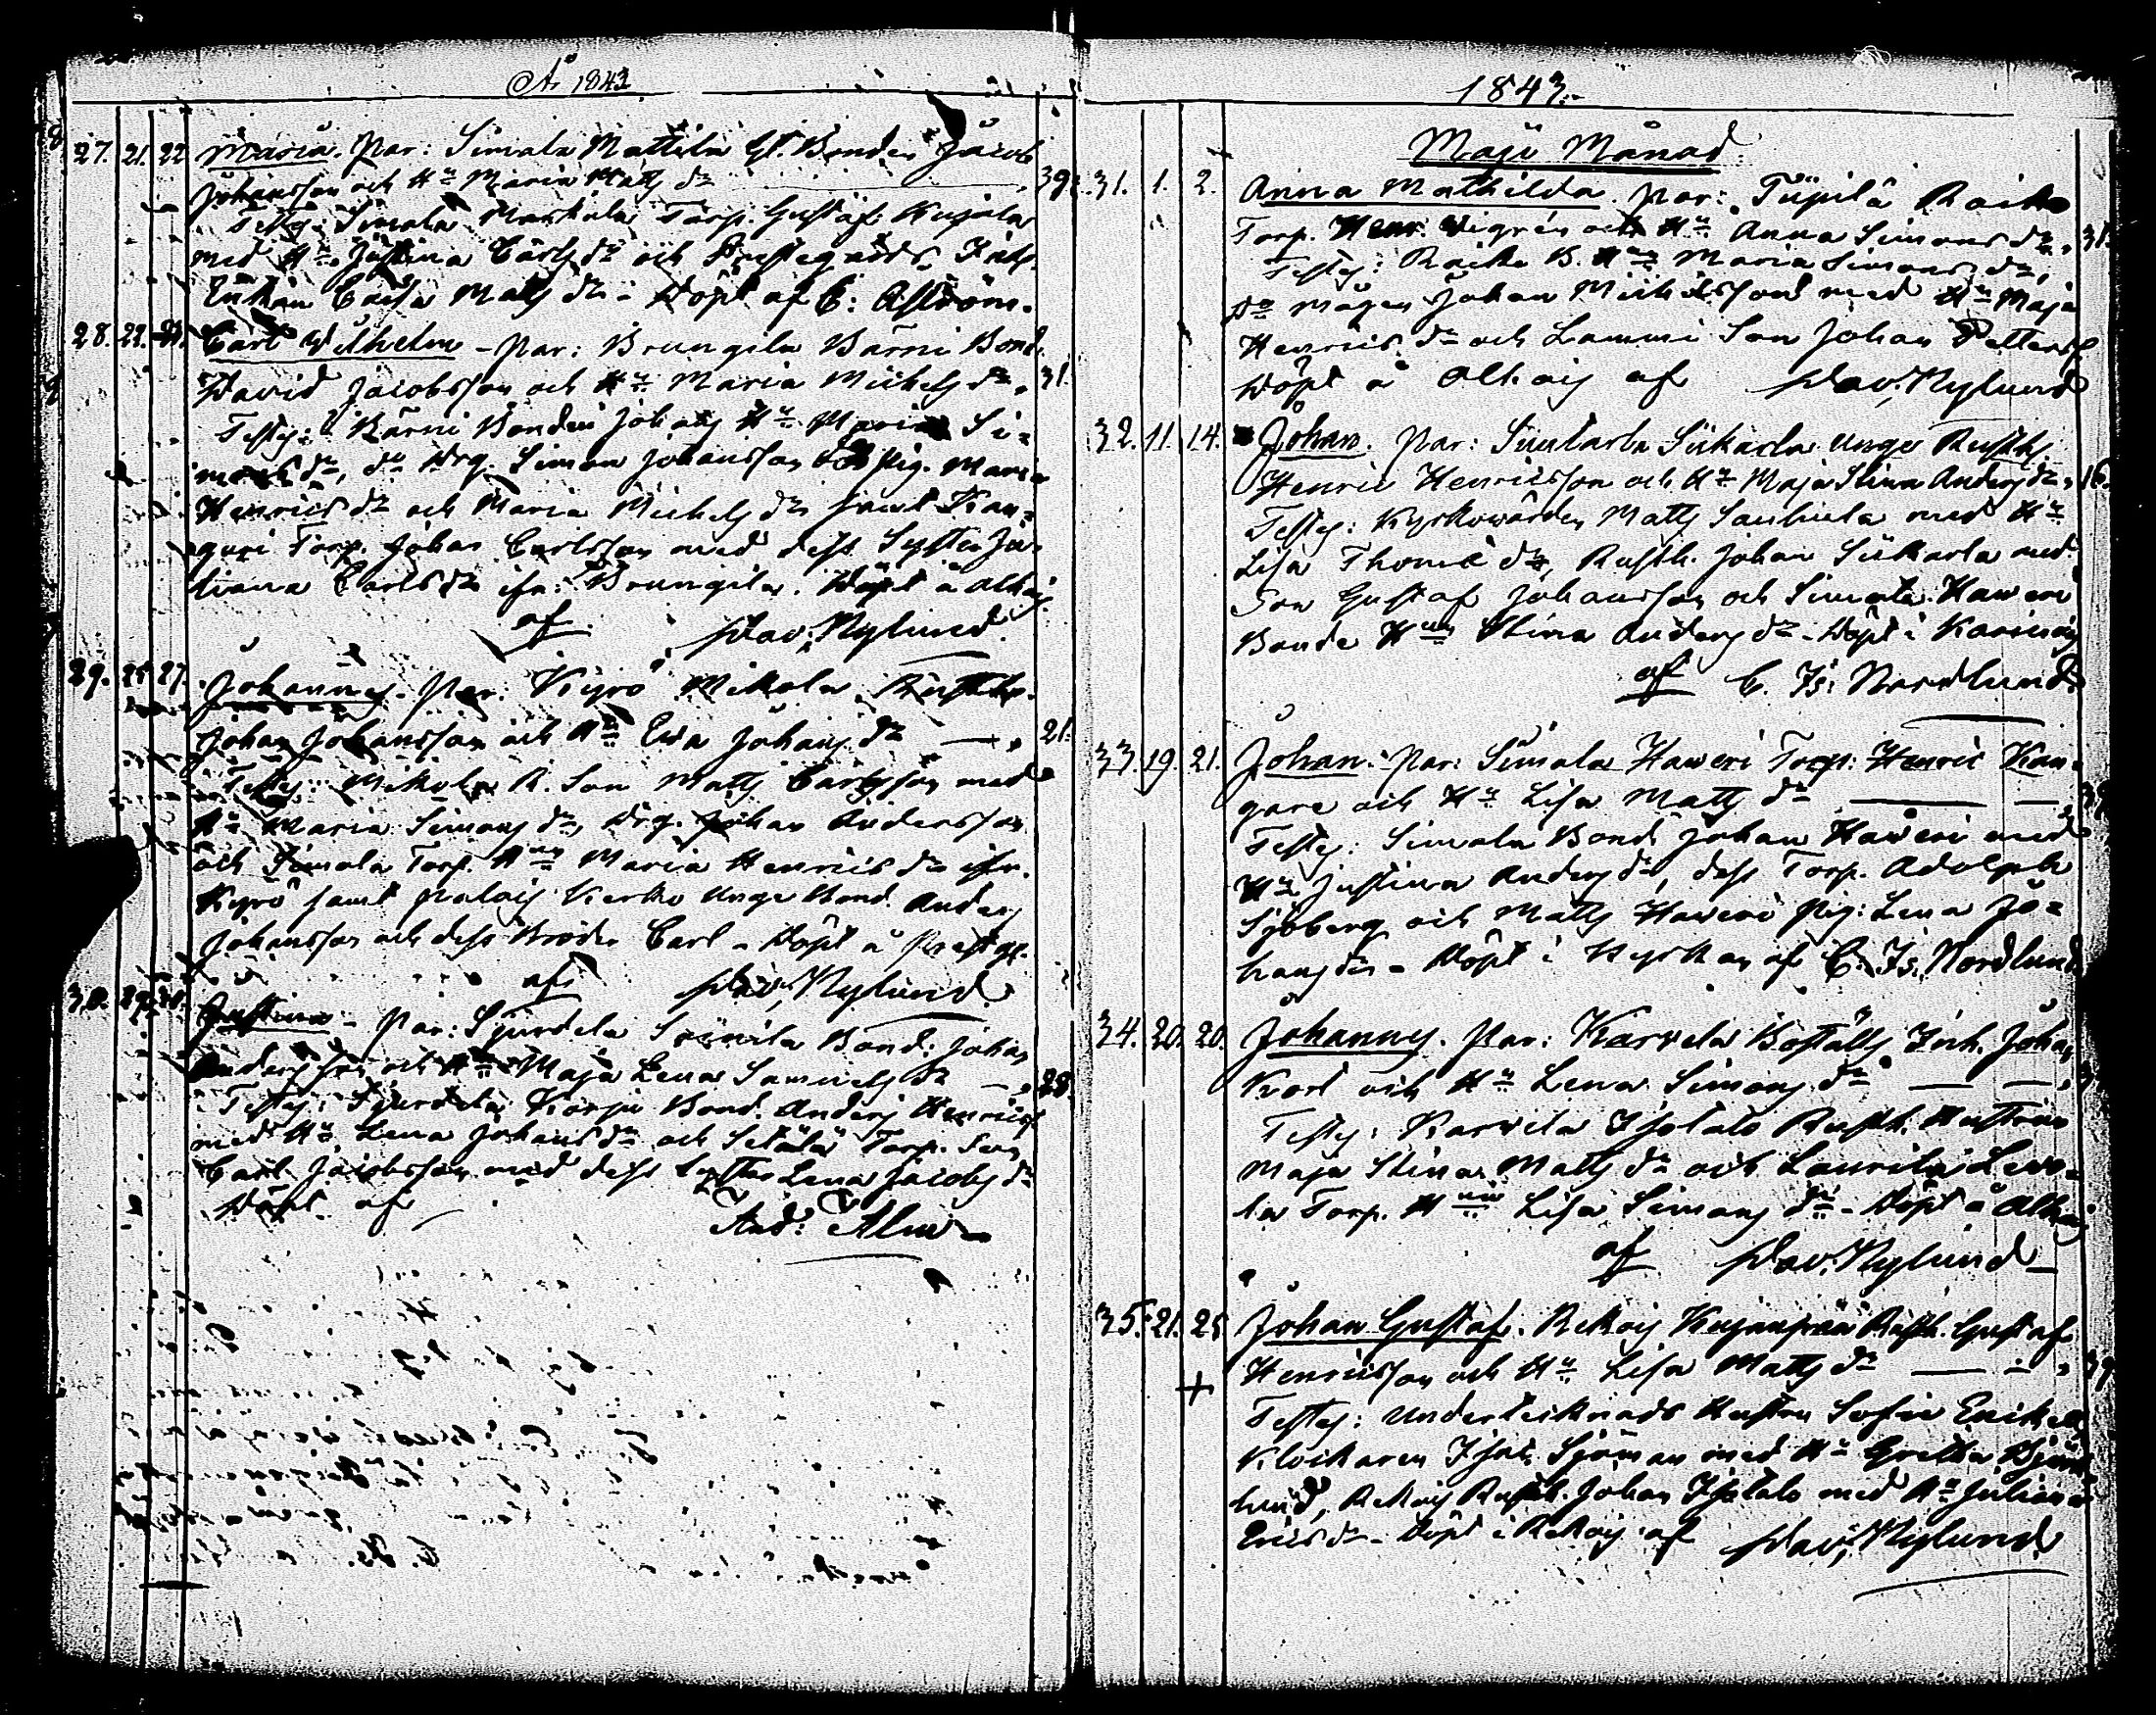 År 1843
27. 21. 22 Maria. Par: Simala Mattila Gl. Bonden Jacob
Johansson och Hu Maria Matts dr 39.
Test: Simala Markula Torp. Gustaf Kujala
med Hu Justina Carls dr och Prestegårds Inh.
Enkan Caisa Matts dr - Döpt af C: Aström.
28. 22. Carl Wilhelm - Par: Brungila Bärni Bond.
David Jacobsson och Hu Maria Michels dr, 31.
Testes: Bärni Bonden Johans Hu Maria Si-
mons dr, dito Drg. Simon Johansson Pig. Maria
Henrics dr och Maria Michels dr samt Kan-
gari Torp. Johan Carlsson med dess Syster Ju-
liana Carls dr ifr. Brungila. Döpt å Alhais
af Dav. Nylund.
29. 25 27. Johannes. Par. Kyrö Mikola Rusth.
Johan Johansson och Hu Eva Johans dr — , 21.
Testes: Mikola R. Son Matts Carlsson med
Hu Maria Simons dr, Drg. Johan Andersson
och Simola Torp. Hun Maria Henrics dr ifr.
Kyrö samt Palais Kerko Unge Bond Anders
Johansson och dess Broder Carl - Döpt å Prestg.
af Dav. Nylund
30. 29. 30. Justina - Par: Sjurdela Bond. Johan
Andersson och Hu Maja Lena Samuels dr — , 28.
Testes: Sjurdela Korpi Bond. Anders Henrics
med Hu Lena Johans dr och Setälä Torp. Son
Carl Jacobsson med dess Syster Lena Jacobs dr
Döpt af And: Alm
1843.
Maji Månad.
31. 1. 2. Anna Mathilda. Par: Tüpilä Raiko
Torp. Henr. Wigrén och Hu Anna Simons dr, 31.
Testes: Raiko B. Hun Maria Simons dr,
Do mågen Johan Michelsson med Hu Maja
Henrics dr och Lammi Son Johan Petterss
Döpt å Alhais af Dav. Nylund
32. 11. 14. Johan. Par: Suutarla Sukarla unge Rusth.
Henric Henricsson och Hu Maja Stina Anders dr, 16.
Testes: Kyrkowärden Matts Sauhula med Hu
Lisa Thomæ dr, Rusth. Johan Sukarla med
Son Gustaf Johansson och Simala Haweri
Bonde Hun Stina Anders dr - Döpt i Karinais
af C. Is: Nordlund
33. 19. 21. Johan. Par: Simala Haweri Torp: Henric Kan-
gare och Hu Lisa Matts dr — —
Testes: Simala Bond Johan Haweri med
Hu Justina Anders dr, dess Torp. Adolph
Sjöberg och Matts Haweri Pig: Lena Jo-
hans dr - Döpt i Kyrkan af C. Is. Nordlund
34. 20. 20. Johannes. Par: Karvela Boställs Inh. Johan
Kort och Hu Lena Simons dr — —,
Testes: Karvela Isotalo Rusth. Hustrun
Maja Stina Matts dr och Laurila Leve-
la Torp. Hun Lisa Simons dr - Döpt å Alhais
af Dav. Nylund —
35. 21. 25 Johan Gustaf. Rekois Kujanpää Rusth. Gustaf
+ Henricsson och Hu Lisa Matts dr — - , 39
Testes: Undertecknads Hustru Sofie Enckell
Klockaren Isac Sjöman med Hu Gretha Björk-
lund, Rekois Rusth. Johan Isotalo med Hu Juliana
Erics dr - Döpt i Rekois af Dav. Nylund